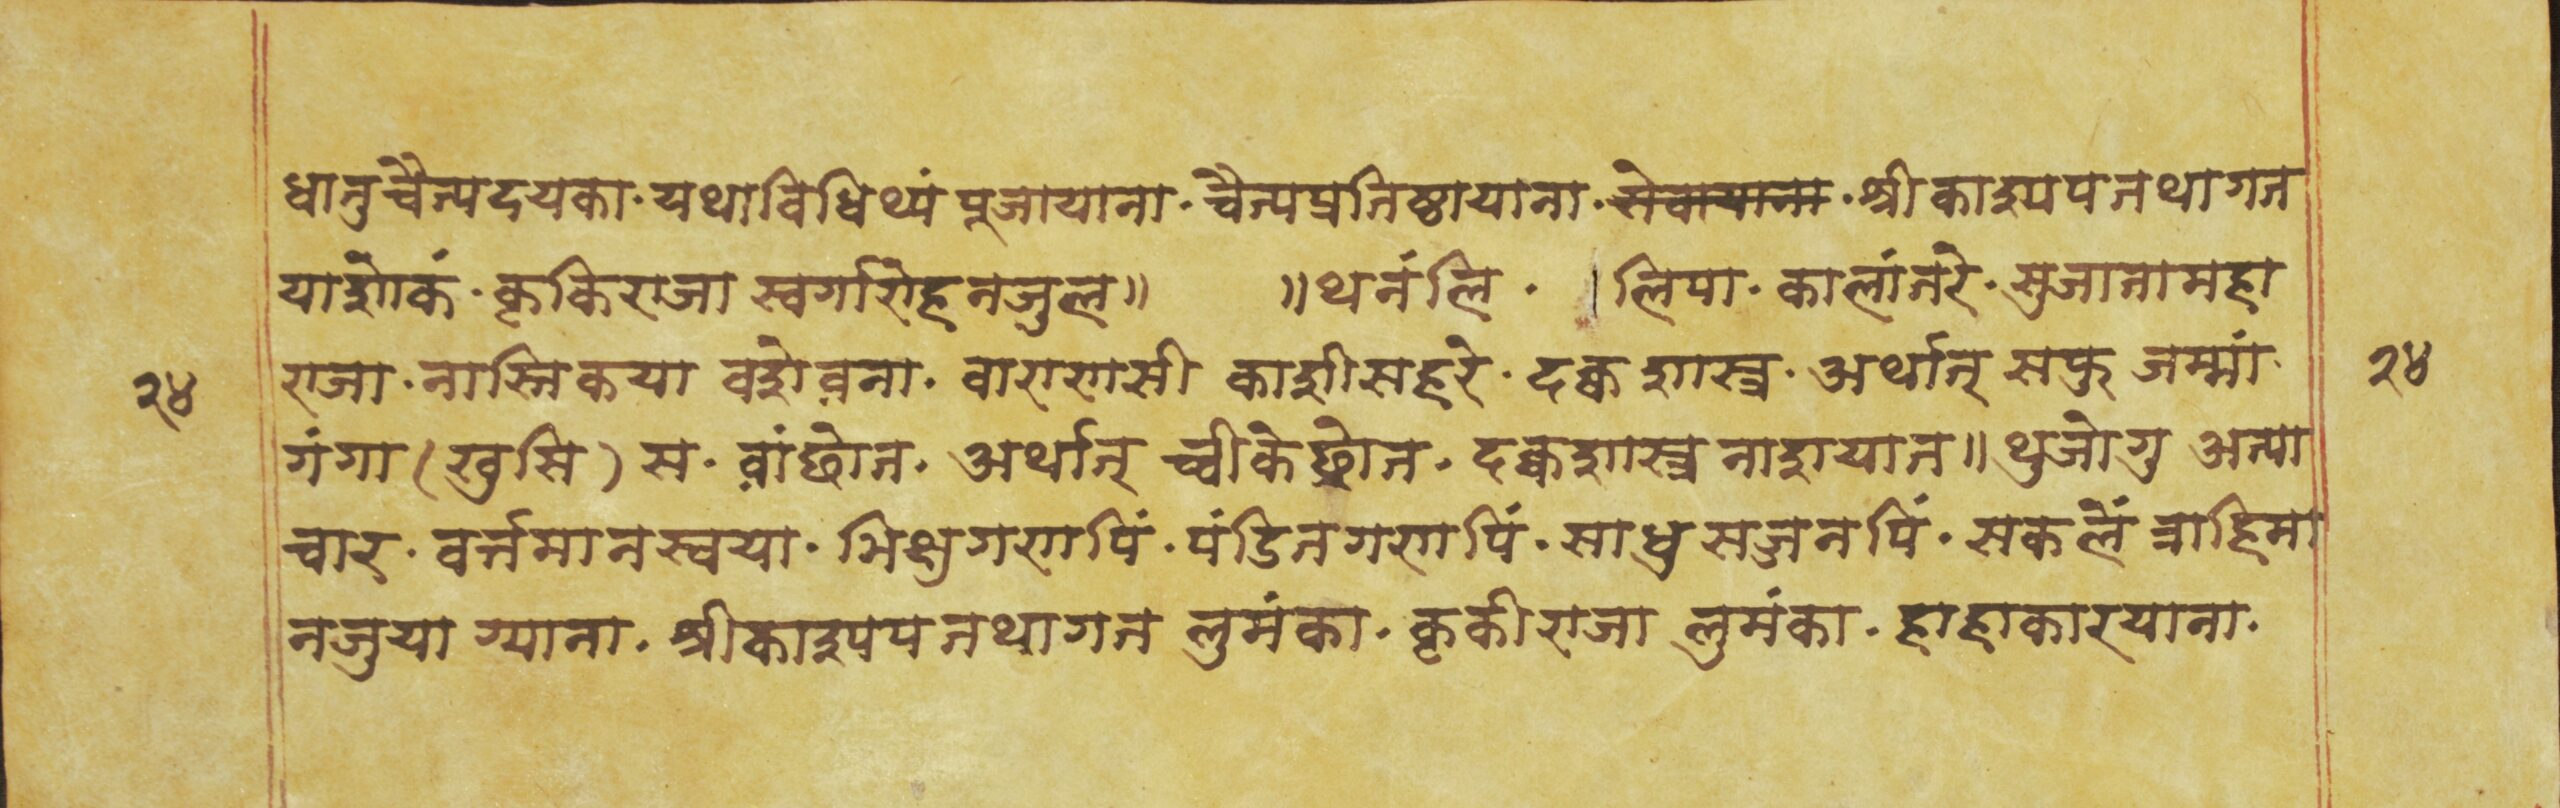 धातुचैत्यदयका·यथाविधिथ्यं पूजायाना·चैत्यप्रतिष्ठायाना·सेवायाना·श्रीकाश्यपतथागत
याशोकं·कृकिराजा स्वर्गारोहनजुल॥ ॥थनंलि· लिपा·कालांतरे·सुजातामहा
२४ राजा·नास्तिकया वशेव़ना·वाराणसी काशीसहरे·दक्व शास्त्र·अर्थात् सफु जम्मां· २४
गंगा (खुसि) स·व़ांछोत·अर्थात् च्वीकेछोत·दक्वशास्त्र नाशयात॥थुजोगु अत्या
चार·वर्त्तमानस्वया·भिक्षुगणपिं·पंडितगणपिं·साधुसज्जनपिं·सकलें त्राहिमा
नजुया ग्याना·श्रीकाश्यपतथागत लुमंका·कृकीराजा लुमंका·हाहाकारयाना·